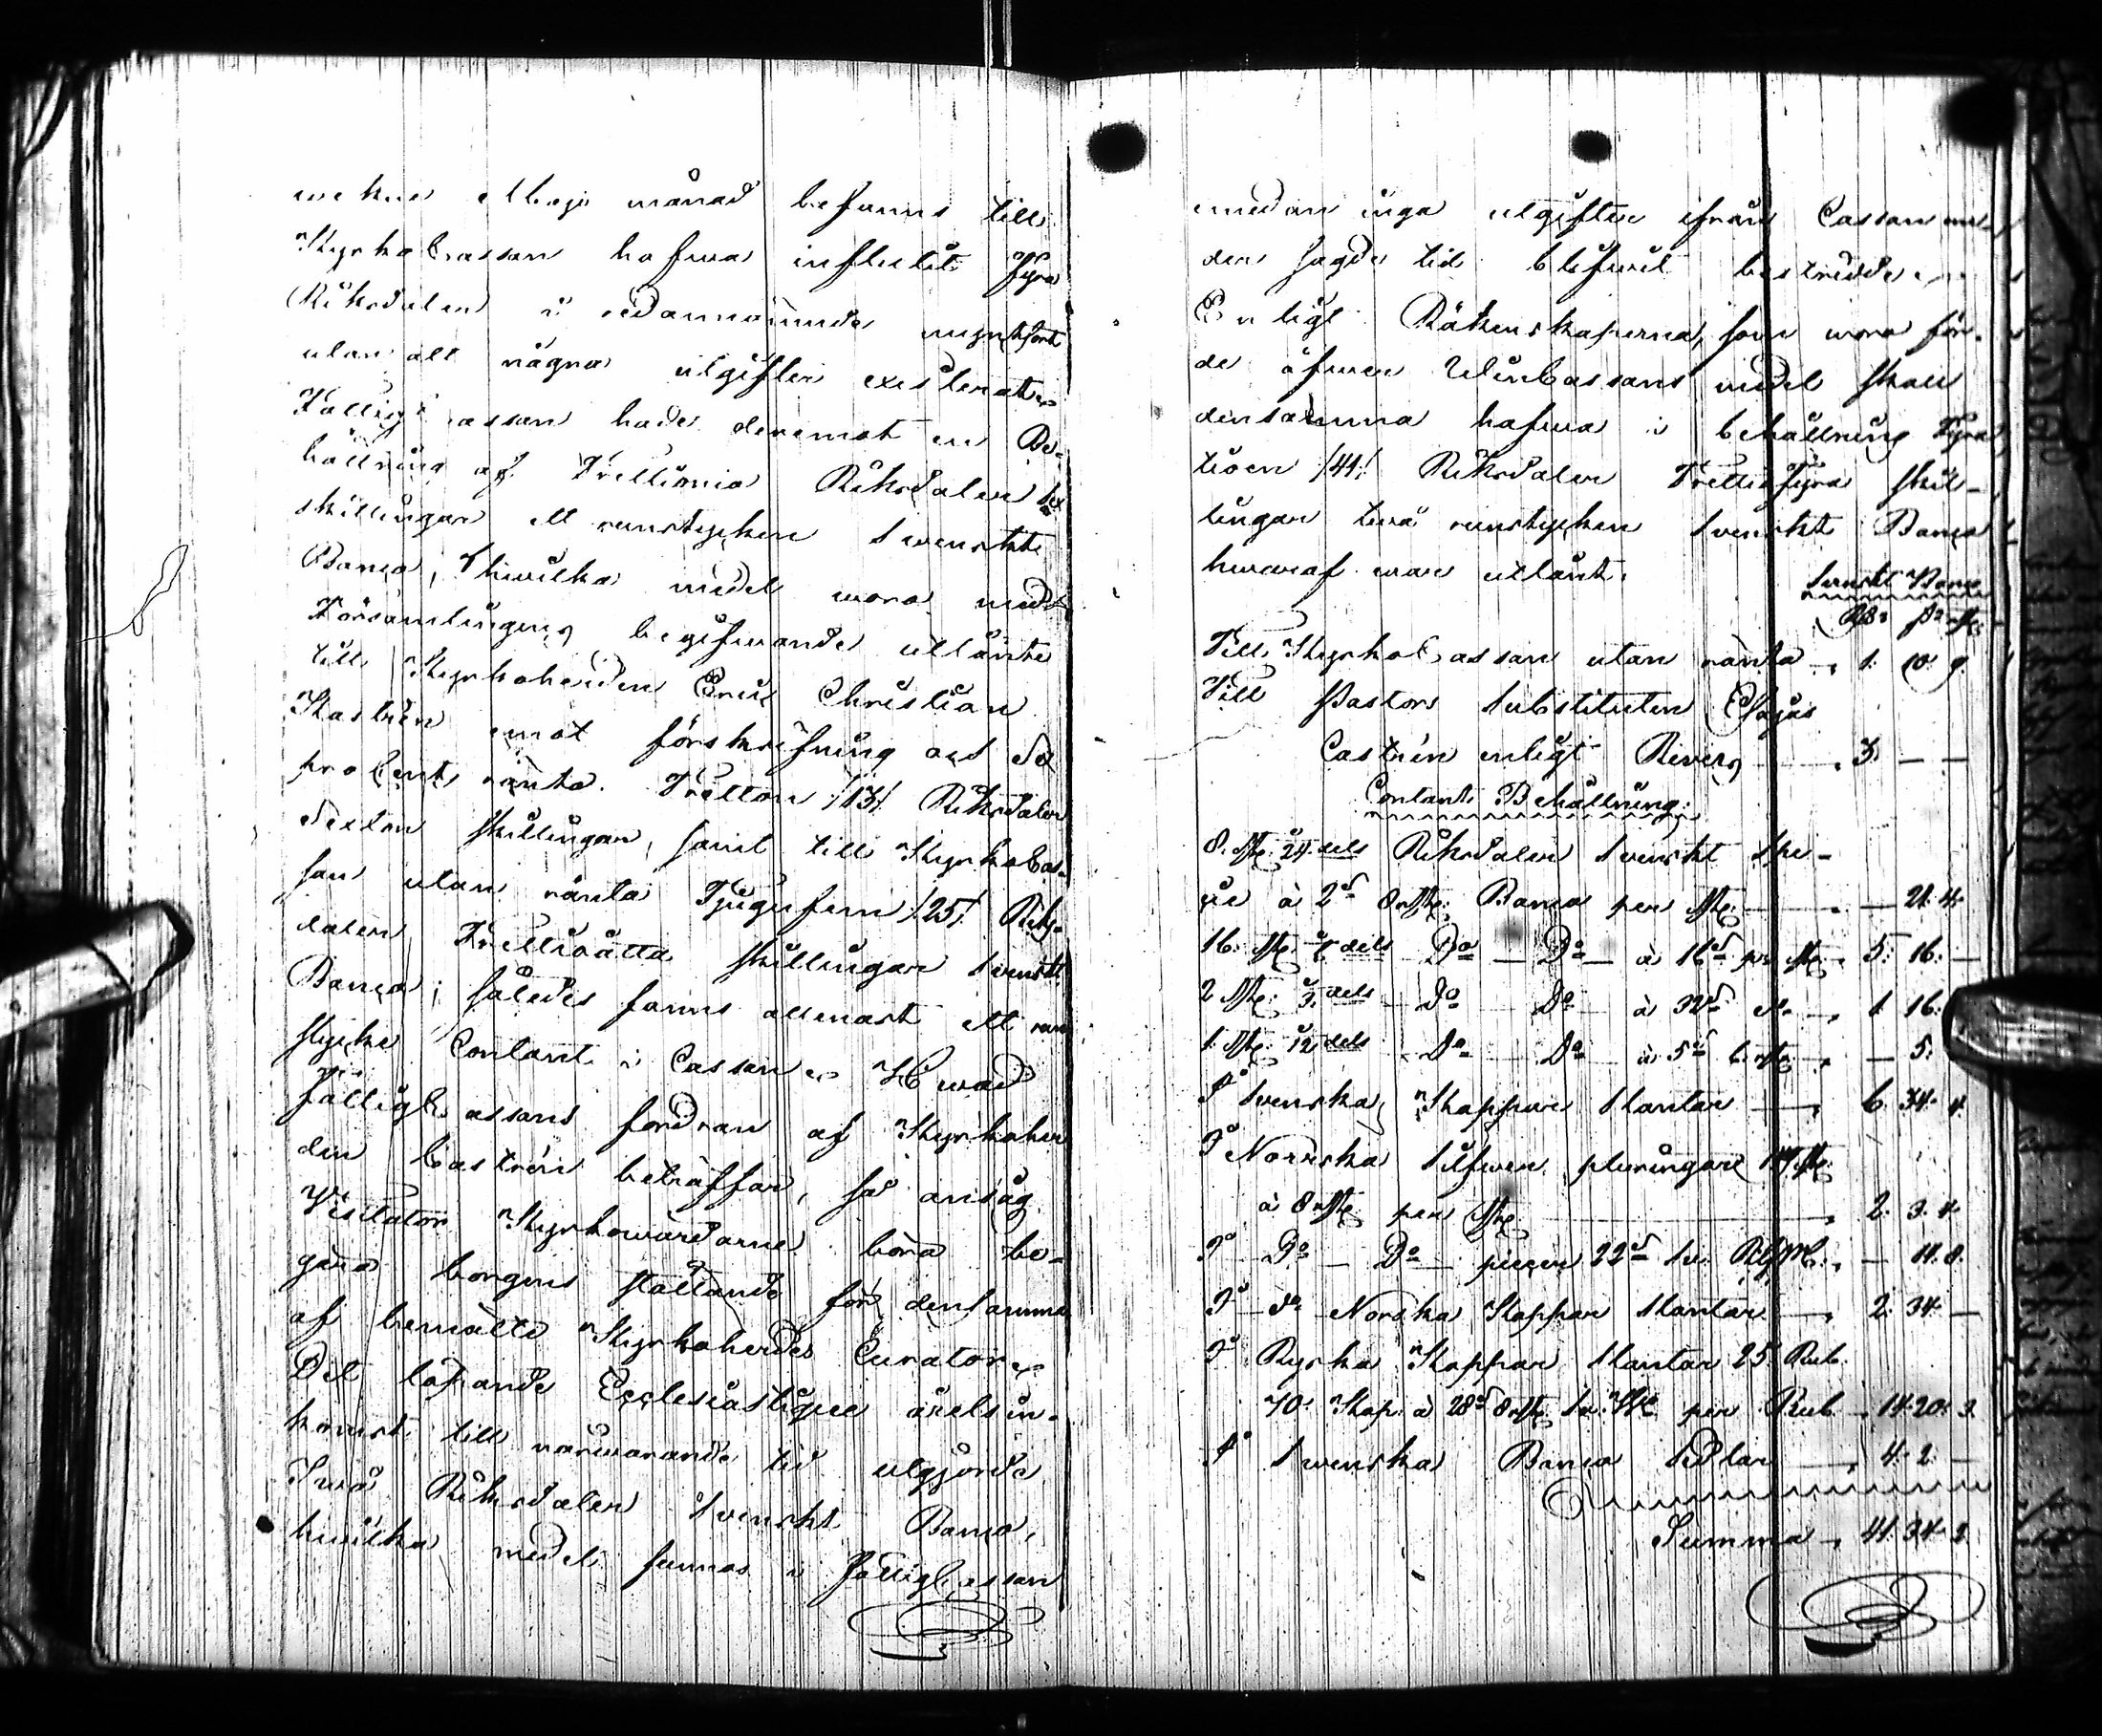 Maji månad befanns till
Kyrko Cassan hafwa influtit fyra
Riksdaler i ofvannämnde myntsort
utan att några utgifter existerat.
Fattig Cassan hade deremot en Be-
hållning af Trettionio Riksdaler sex
skillingar ett runstycken Swenskt
Banco, hwilka medel woro med
Församlingens begifwande utlånte
till Kyrkoherden Eric Christian
Kastrén emot förskrifning och Sex
pro Cents ränta Tretton /13/ Riksdaler
Sexton skillingar, samt till Kyrko Cas-
san utan ränta Tjugufem /25/ Riks-
daler Trettioåtta skillingar Swenskt
Banco; således fanns allenast ett run-
stycke Contant i Cassan. Hwad
Fattig Cassans fordran af Kyrkoher-
den Castrén beträffar, så ansåg
Visitator Kyrkowärdarne böra be-
gära borgens ställande för densamma
af bemälte Kyrkoherdes Curator.
Det löpande Ecclesiastique årets in-
komst till närwarande tid utgjorde
Twå Riksdaler Swenskt Banco,
hwilka medel funnos i Fattig Cassan
emedan inga utgifter ifrån Cassan un-
der sagde tid blifwit bestridde.
Enligt Räkenskaperna, som woro för-
de öfwer WinCassans medel skall
densamma hafwa i behållning Fyra
tioen /41/ Riksdaler Trettiofyra skil-
lingar twå runstycken Swenskt Banco
hwaraf war utlånt.
Swenskt Banco
Till Kyrko Cassan utan ränta 1. 10. 9.
Till Pastors Substituten Esajas
Castrén enligt Revers 3. — —
Contant Behållning:
8. st. 24 dels Riksdaler Swenskt Spe-
cie à 2 s. 8 rst. Banco per st. — 21. 4.
16. st. 6 dels Do — Do — à 16 s. per st. 5. 16. —
2 st. 3 dels Do Do à 32 s. 1. 16.
1. st. 12 dels Do Do à 5 s. 6. rst. — 5.
I Swenska Koppar Slantar 6. 34. 4.
I Norrska Silfwer penningar st.
à 8 rst per st. 2. 3. 4.
I Do — Do — pieçer 22 s. — 14. 8.
I do Norska Koppar Slantar 2. 34. —
I Ryska Koppar Slantar 25 Rub.
70 Kop. à 28 s. 8 rst. per Rub. 14. 20. 3.
I Swenska Banco Sedlar 4. 2. —
Summa 41. 34. 2.